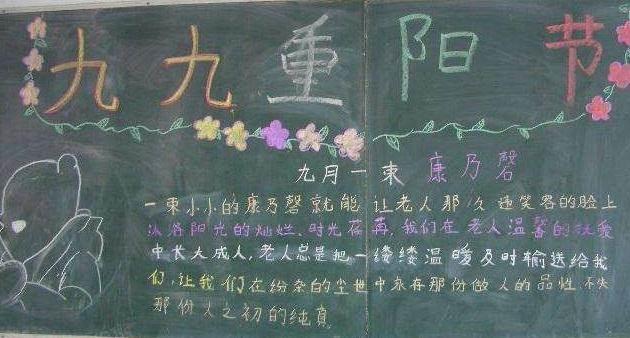 九九重阳节
九月一束 康乃馨
一束小小的康乃馨就能 让老人那 笑容的脸上
阳光的灿烂、时光荏苒,我们在老人温馨的 爱
中长大成人,老人总是把一缕缕温暖及时输送给我
们,让我们在纷杂的尘世中永存那份做人的品性,不失
那份人之初的纯真